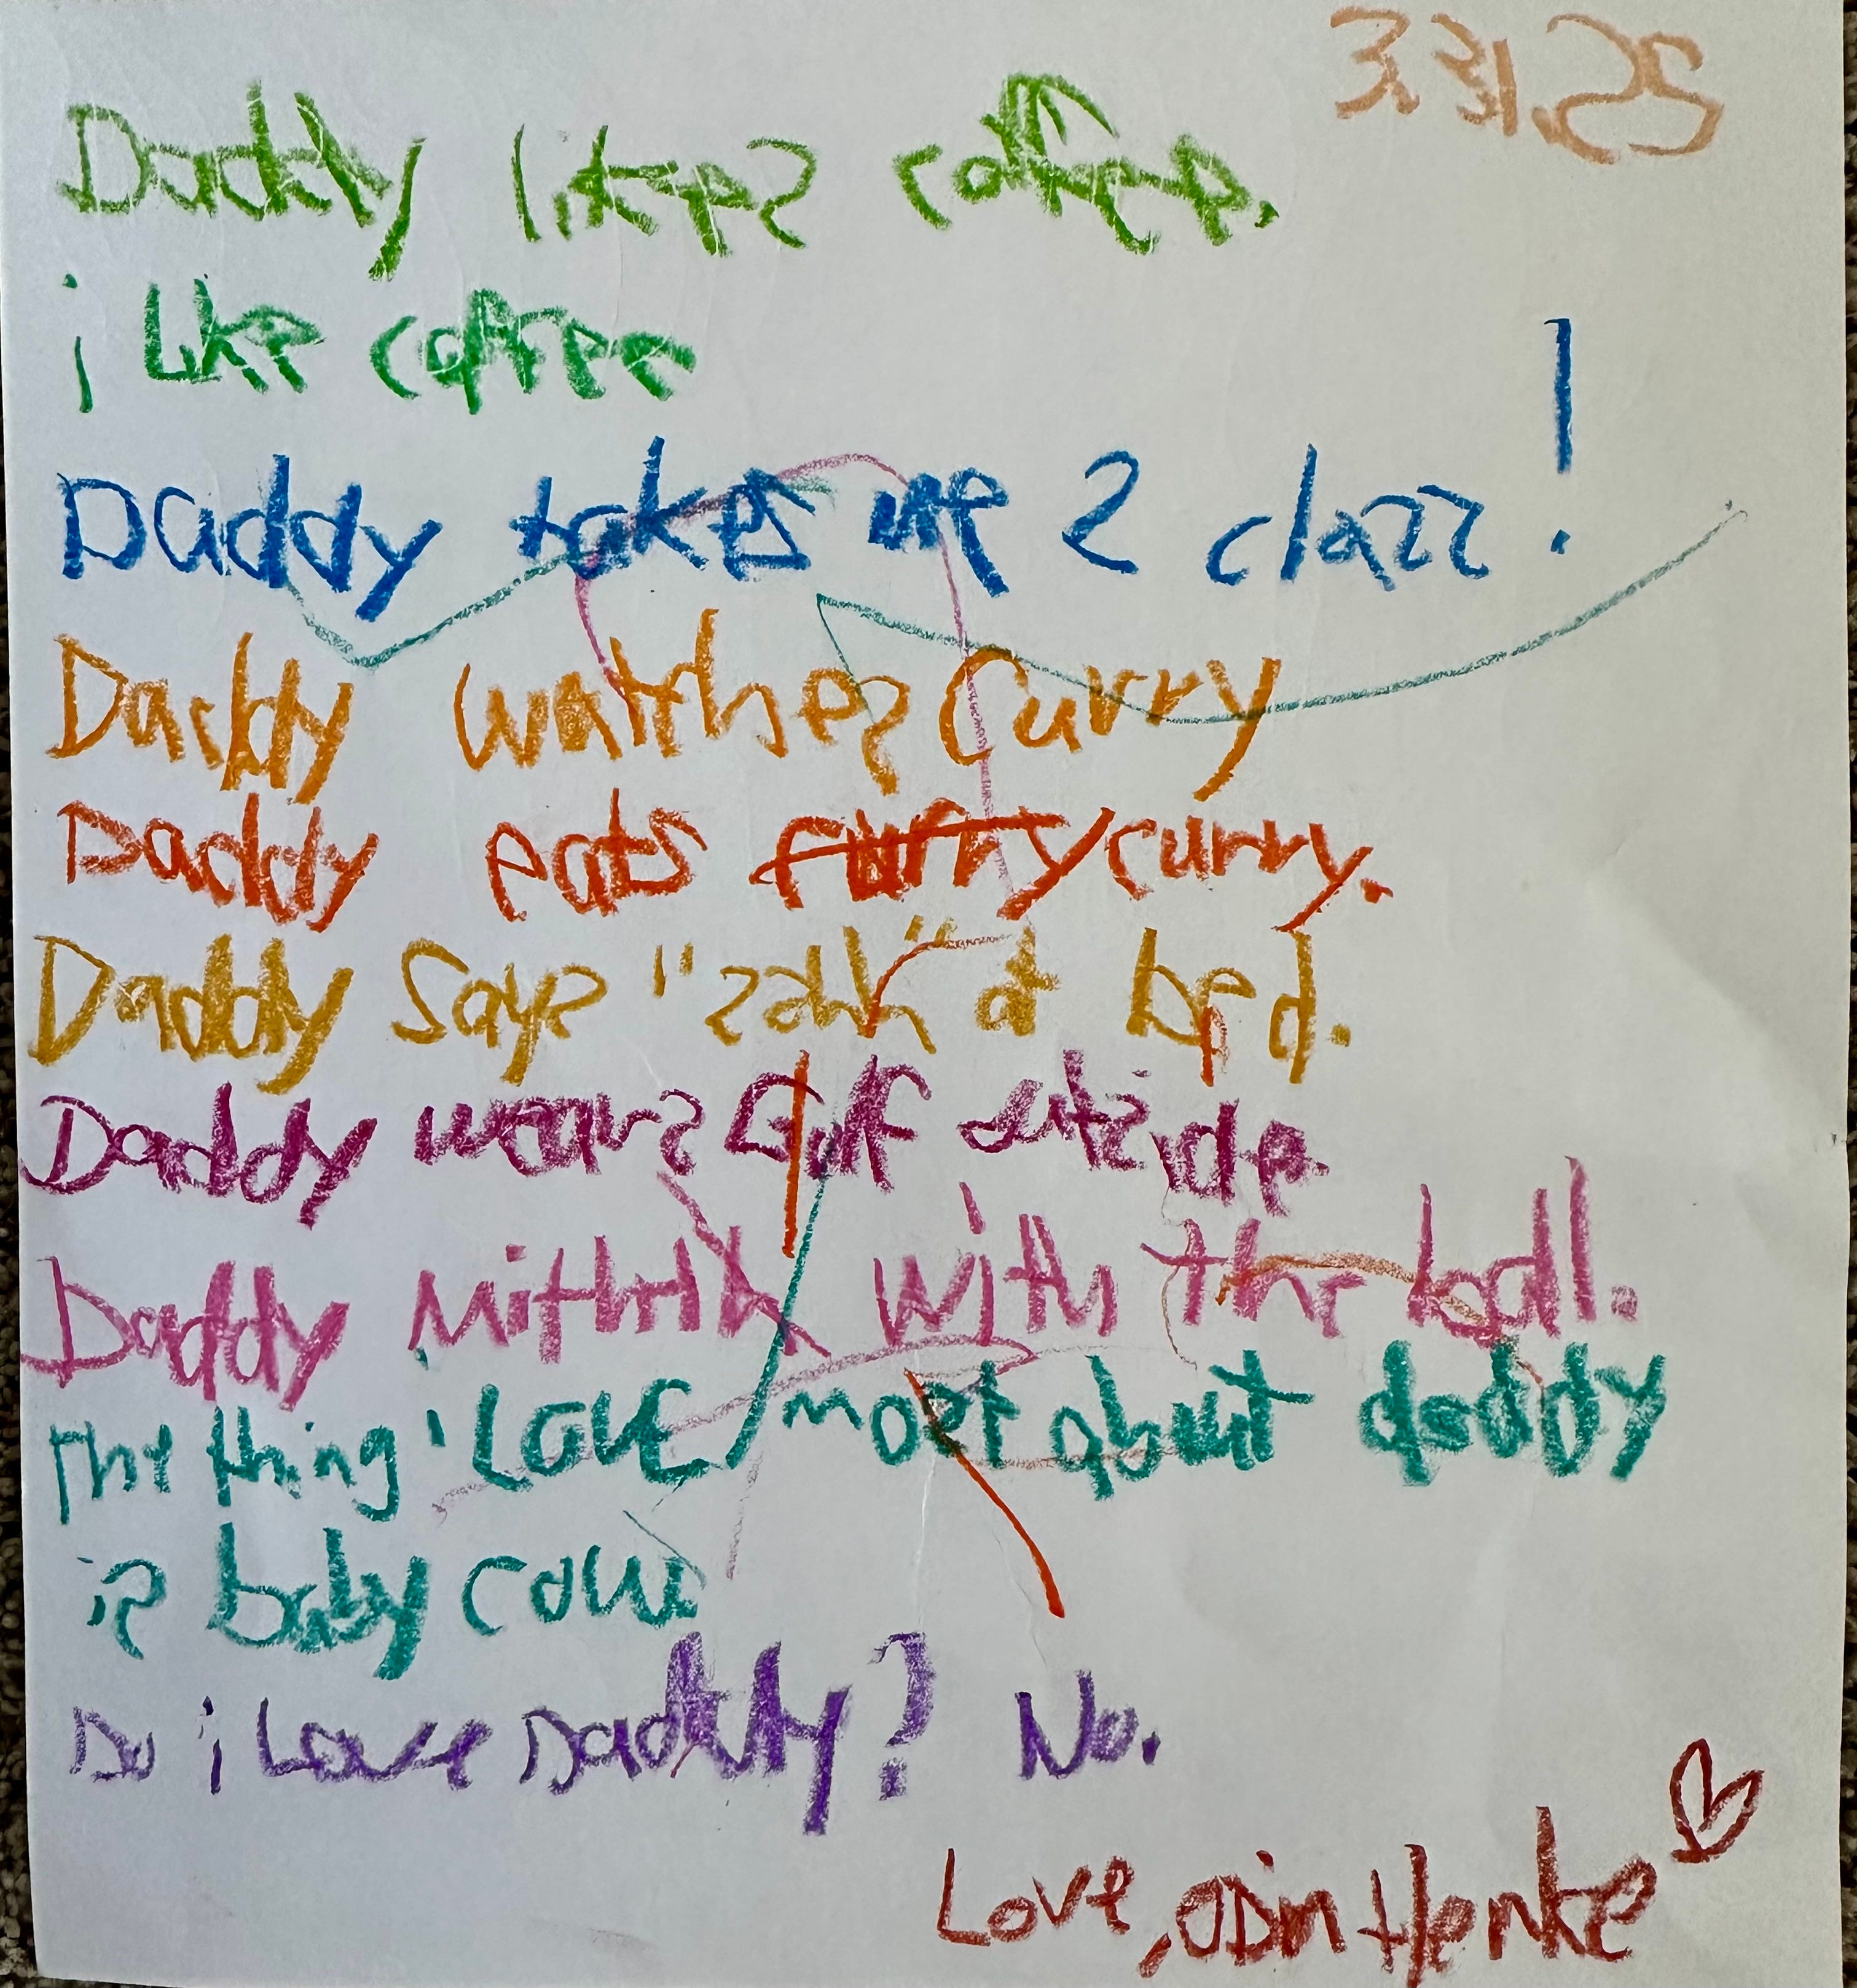 3.31.25
Daddy likes coffee.
i like coffee
Daddy takes me 2 clazz!
Daddy watches Curry
Daddy eats curry.
Daddy says "zahh" a bed.
Daddy wears Gulf outside.
Daddy with the ball.
The thing i LOVE most about daddy
is baby cow
Do i Love Daddy? No.
Love, Odin Henke